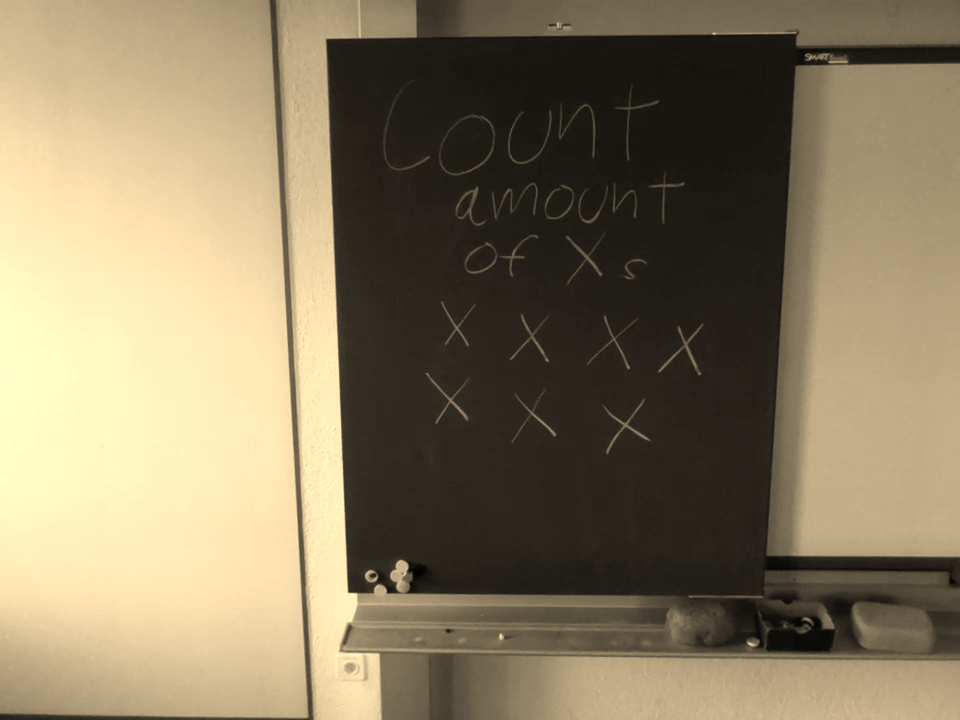 Count
amount
of Xs
X X X X
X X X
SMART